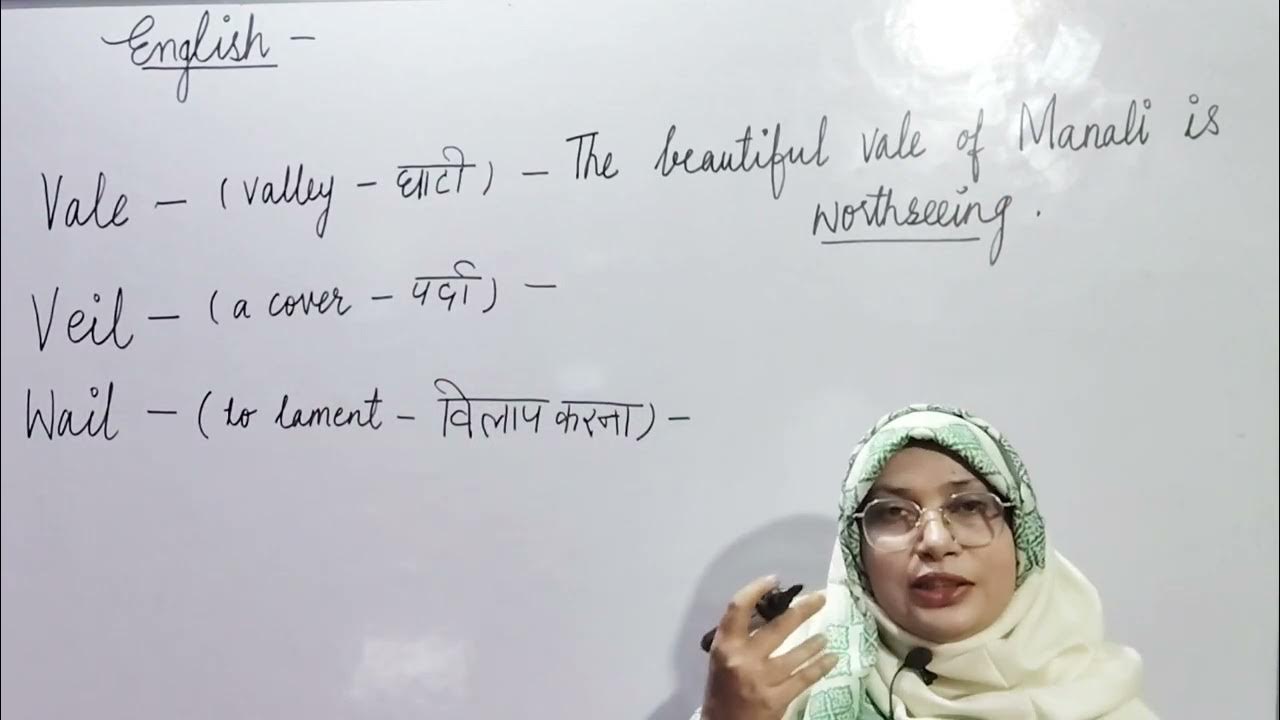 English -
Vale - (valley - घाटी) - The beautiful vale of Manali is
worthseeing.
Veil - (a cover - पर्दा) -
Wail - (to lament - विलाप करना) -